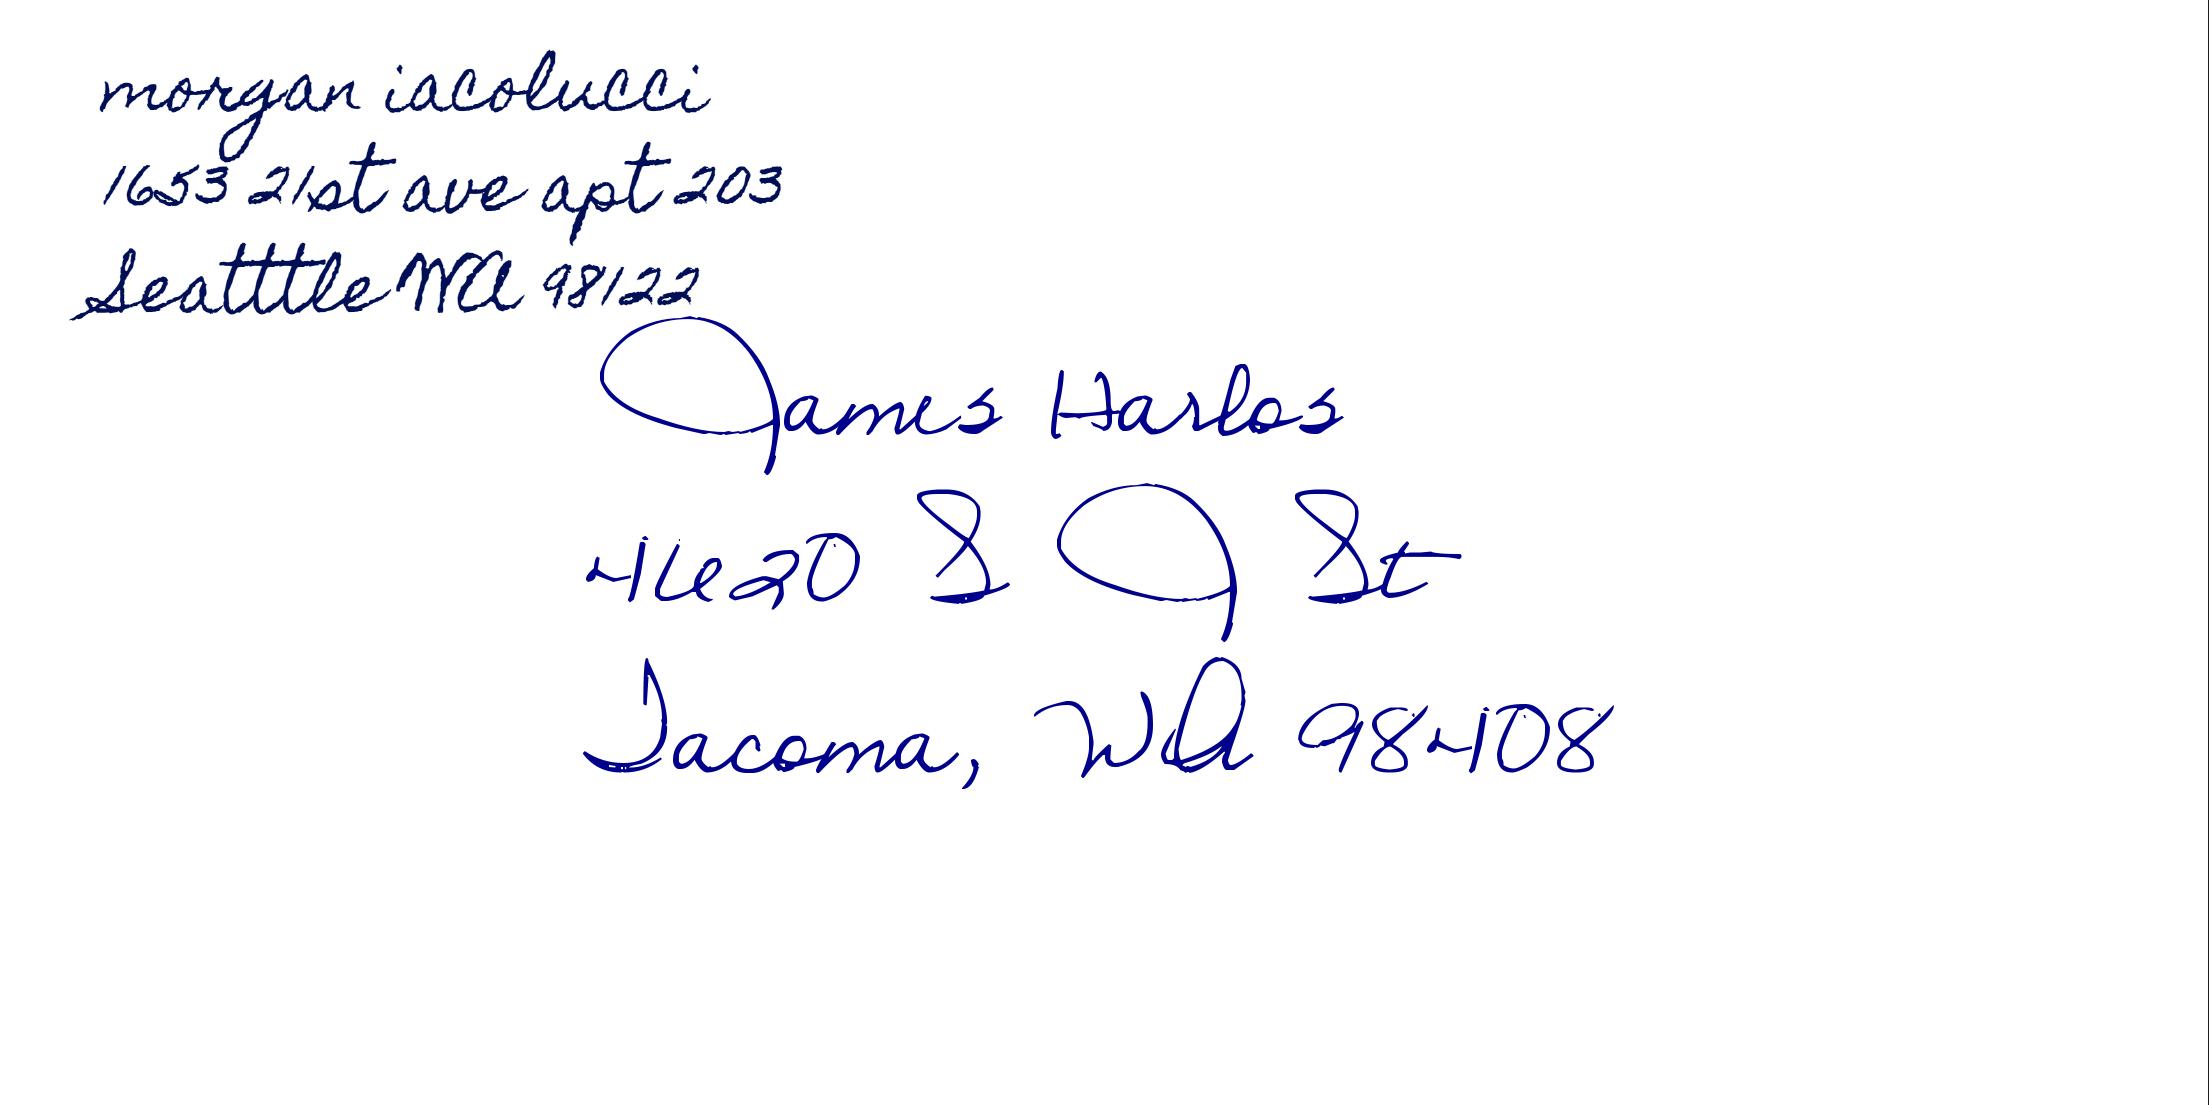 morgan iacolucci
1653 21st ave apt 203
Seatttle WA 98122
James Harlos
4620 S J St
Tacoma, WA 98408